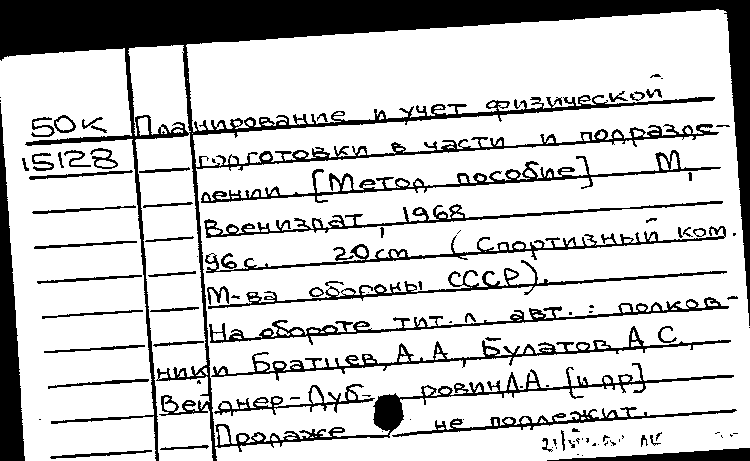 50К Планирование и учет физической
15128 подготовки в части и подразде-
лении. [Метод. пособие] М.,
Воениздат, 1968
96 с. 20 cm (Спортивный ком.
М-ва обороны СССР).
На обороте тит. л. авт.: полков-
ники Братцев, А.А, Булатов, А С.,
Вейднер-Дуб- ровин Д.А. [и др]
Продаже не подлежит.